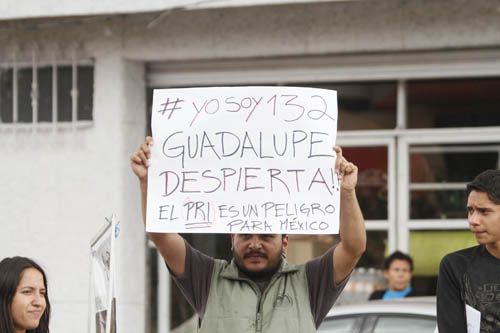 # YO SOY 132
GUADALUPE
DESPIERTA!!
EL PRI ES UN PELIGRO
PARA MÉXICO